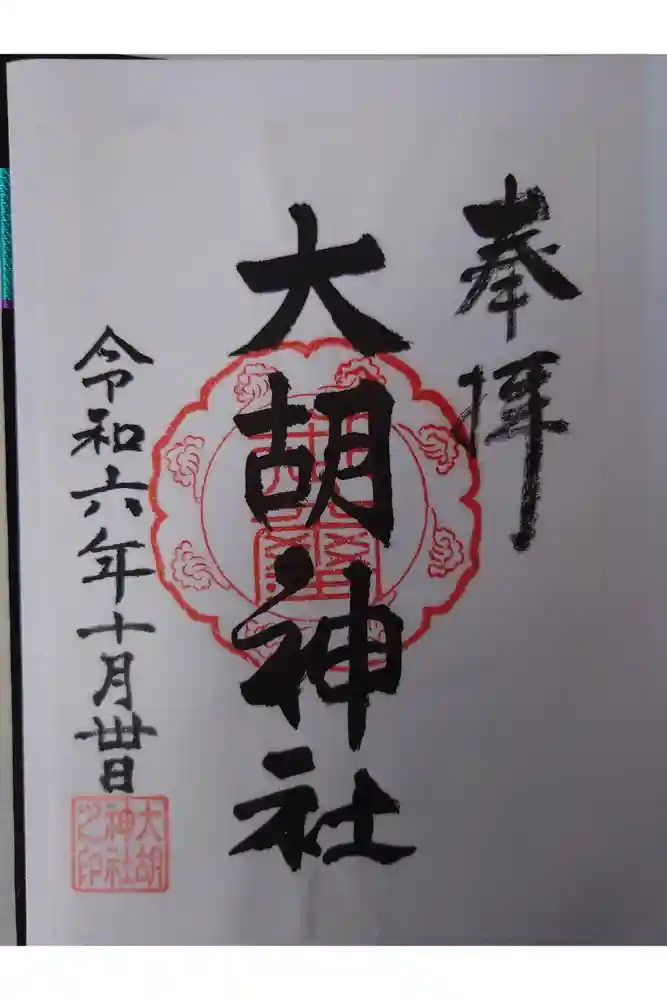 奉拝
大胡神社
令和六年十月丗日
大胡
神社
之印